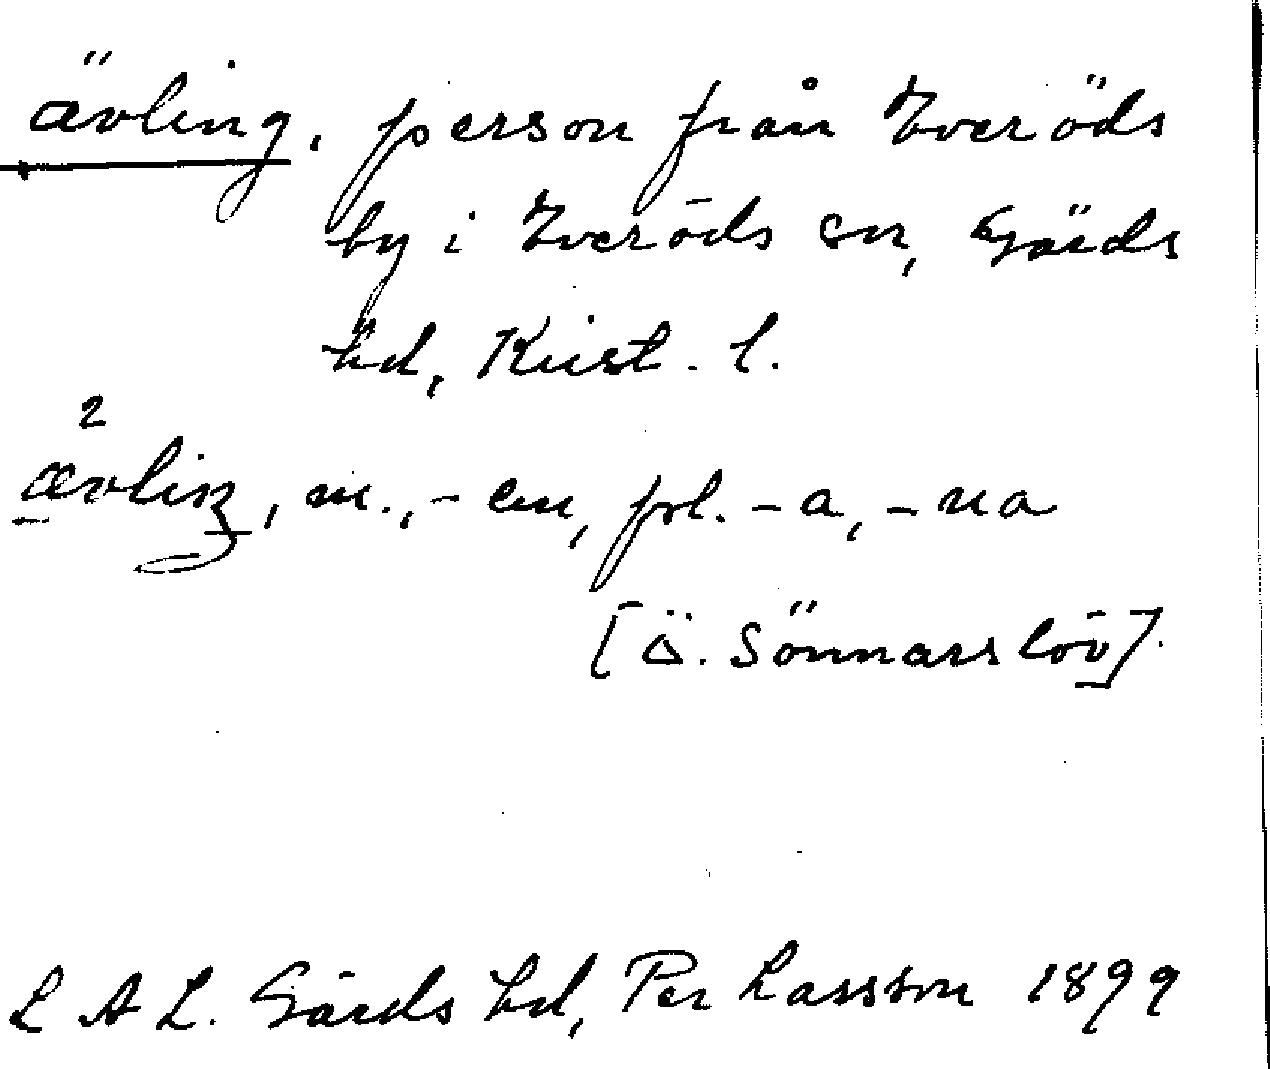 ävling, person från Everöds
by i Everöds sn, Gärds
hd, Krist. l.
2
ævliŋ, m., -en, pl. -a, -na
[Ö. Sönnarslöv].
L A L. Gärds hd, Per Larsson 1899